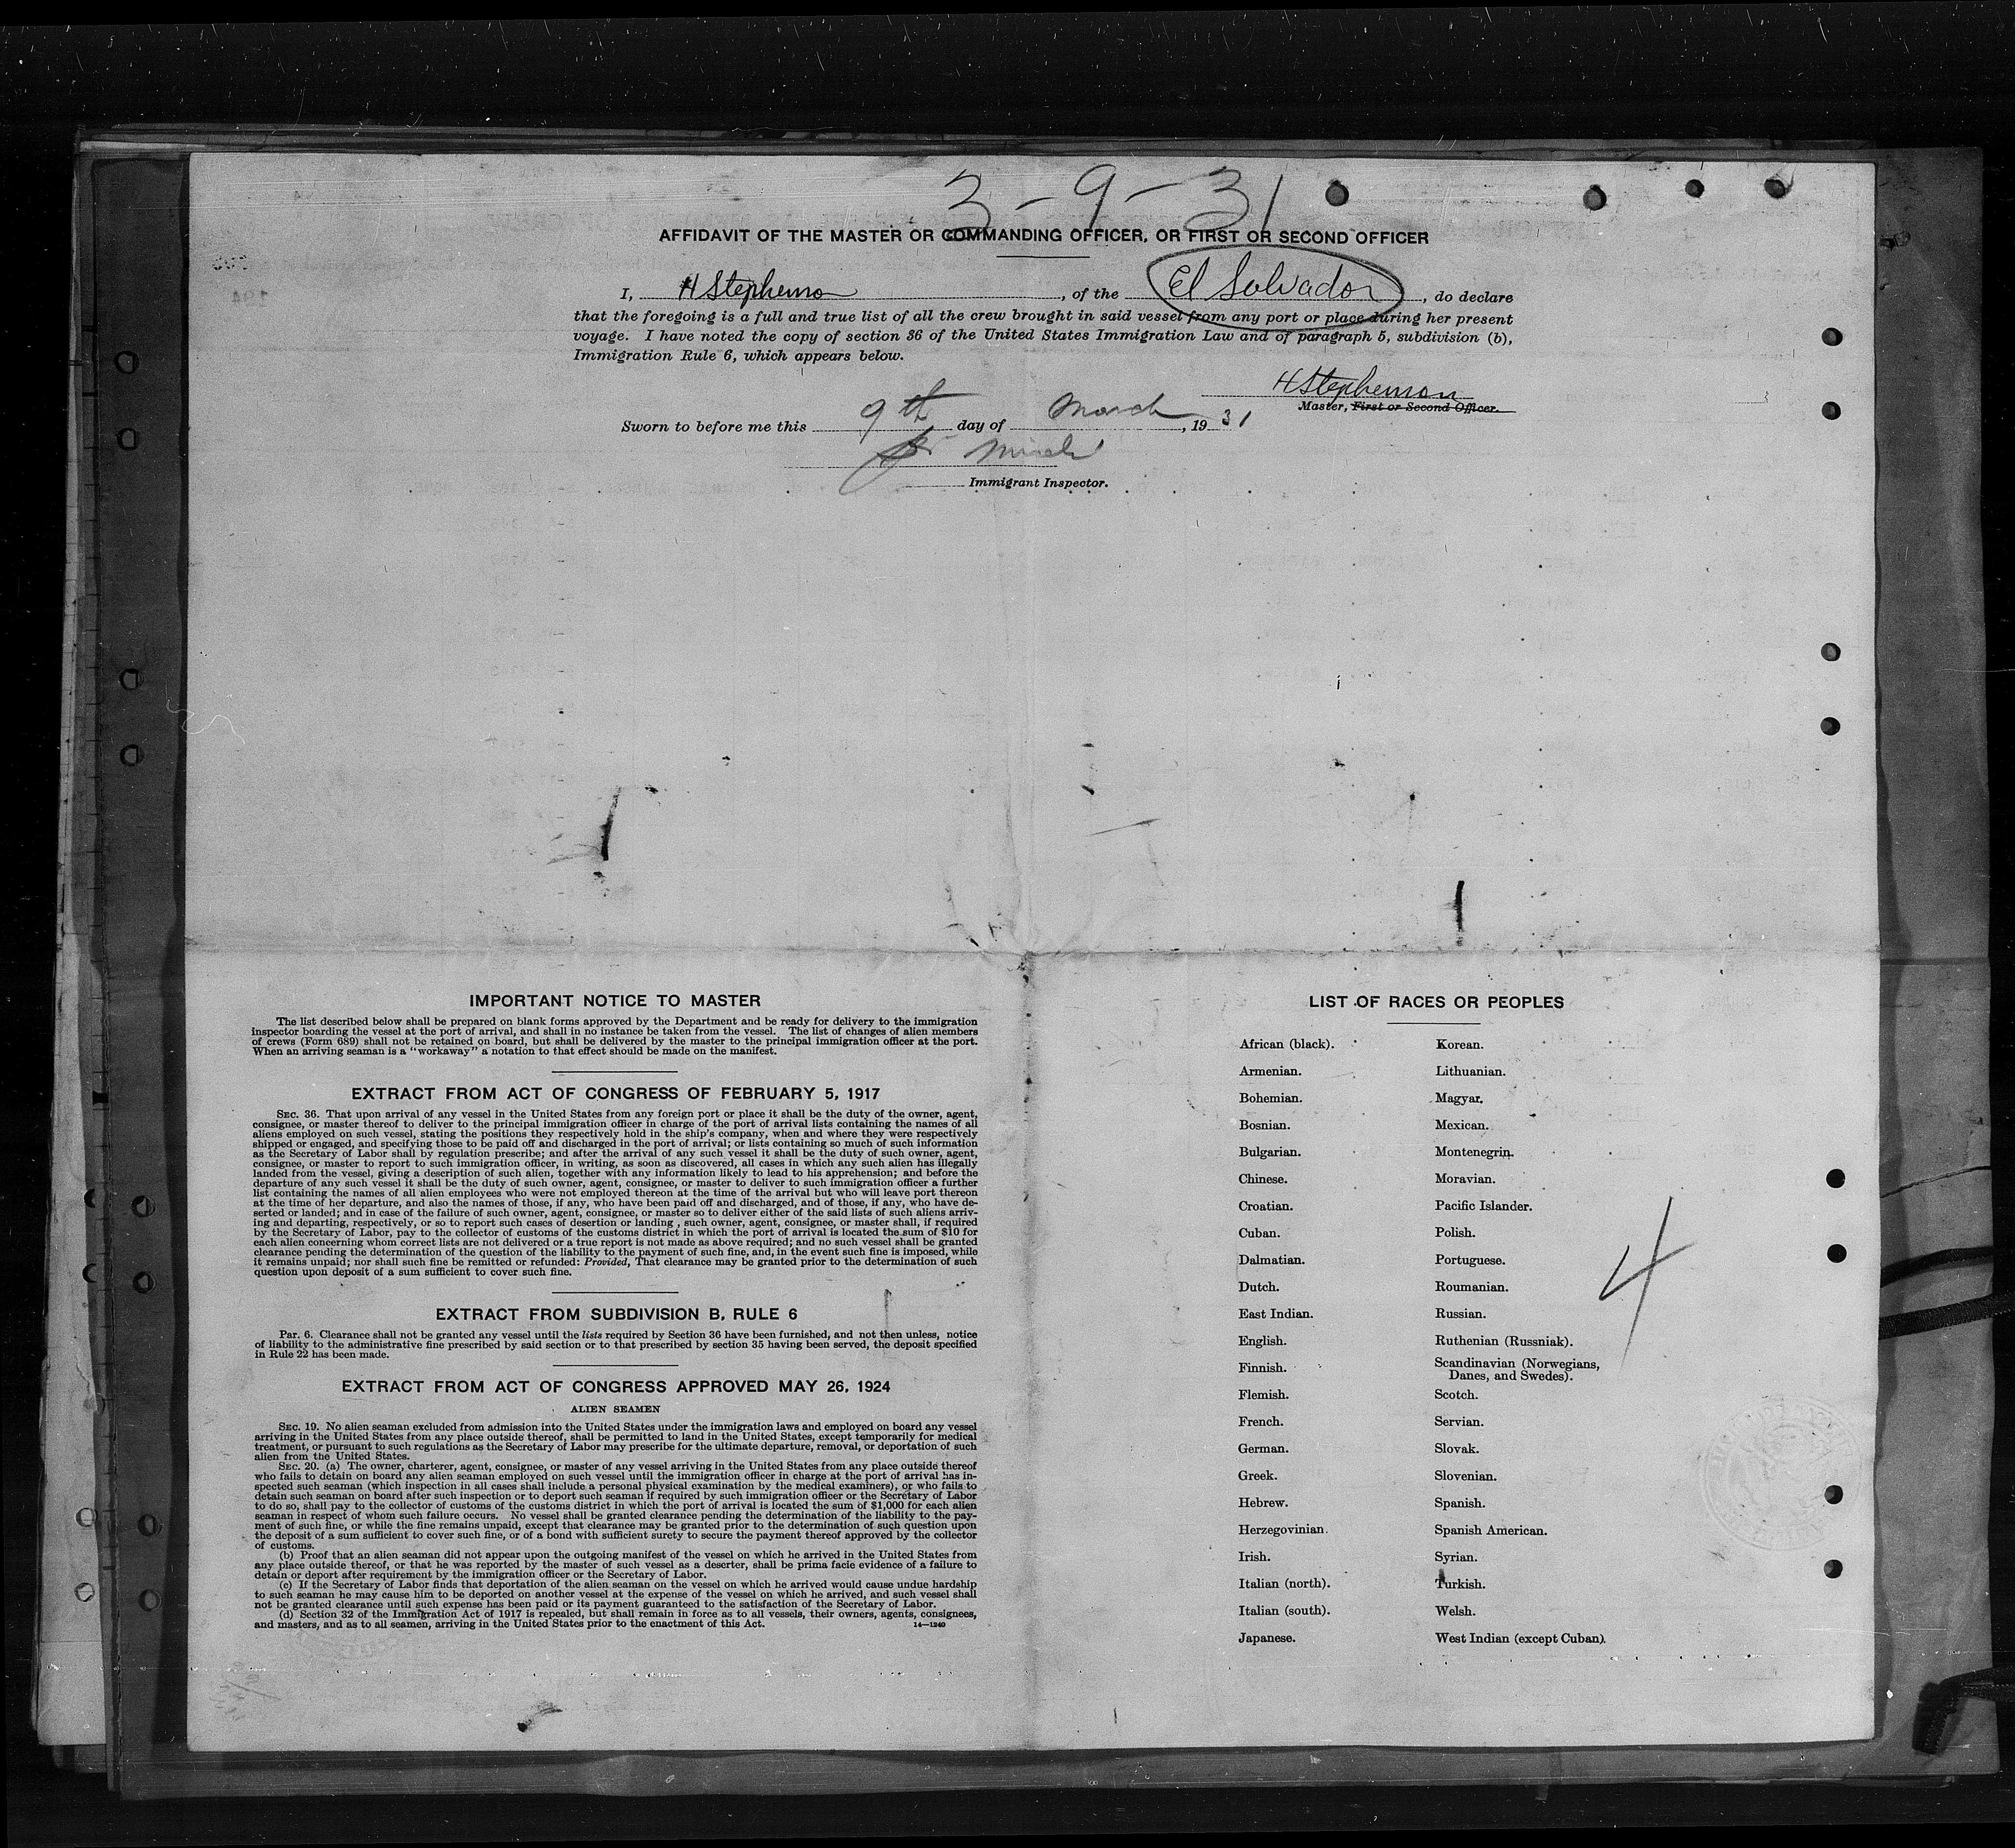 3-9-31
AFFIDAVIT OF THE MASTER OR COMMANDING OFFICER, OR FIRST OR SECOND OFFICER
I, H Stephenson, of the El Salvador, do declare
that the foregoing is a full and true list of all the crew brought in said vessel from any port or place during her present
voyage. I have noted the copy of section 36 of the United States Immigration Law and of paragraph 5, subdivision (b),
Immigration Rule 6, which appears below.
H Stephenson
Master, First or Second Officer.
Sworn to before me this 9th day of March, 1931
Immigrant Inspector.
IMPORTANT NOTICE TO MASTER
The list described below shall be prepared on blank forms approved by the Department and be ready for delivery to the immigration
inspector boarding the vessel at the port of arrival, and shall in no instance be taken from the vessel. The list of changes of alien members
of crews (Form 689) shall not be retained on board, but shall be delivered by the master to the principal immigration officer at the port.
When an arriving seaman is a "workaway" a notation to that effect should be made on the manifest.
EXTRACT FROM ACT OF CONGRESS OF FEBRUARY 5, 1917
SEC. 36. That upon arrival of any vessel in the United States from any foreign port or place it shall be the duty of the owner, agent,
consignee, or master thereof to deliver to the principal immigration officer in charge of the port of arrival lists containing the names of all
aliens employed on such vessel, stating the positions they respectively hold in the ship's company, when and where they were respectively
shipped or engaged, and specifying those to be paid off and discharged in the port of arrival; or lists containing so much of such information
as the Secretary of Labor shall by regulation prescribe; and after the arrival of any such vessel it shall be the duty of such owner, agent,
consignee, or master to report to such immigration officer, in writing, as soon as discovered, all cases in which any such alien has illegally
landed from the vessel, giving a description of such alien, together with any information likely to lead to his apprehension; and before the
departure of any such vessel it shall be the duty of such owner, agent, consignee, or master to deliver to such immigration officer a further
list containing the names of all alien employees who were not employed thereon at the time of the arrival but who will leave port thereon
at the time of her departure, and also the names of those, if any, who have been paid off and discharged, and of those, if any, who have de-
serted or landed; and in case of the failure of such owner, agent, consignee, or master so to deliver either of the said lists of such aliens arriv-
ing and departing, respectively, or so to report such cases of desertion or landing , such owner, agent, consignee, or master shall, if required
by the Secretary of Labor, pay to the collector of customs of the customs district in which the port of arrival is located the sum of $10 for
each alien concerning whom correct lists are not delivered or a true report is not made as above required; and no such vessel shall be granted
clearance pending the determination of the question of the liability to the payment of such fine, and, in the event such fine is imposed, while
it remains unpaid; nor shall such fine be remitted or refunded: Provided, That clearance may be granted prior to the determination of such
question upon deposit of a sum sufficient to cover such fine.
EXTRACT FROM SUBDIVISION B, RULE 6
Par. 6. Clearance shall not be granted any vessel until the lists required by Section 36 have been furnished, and not then unless, notice
of liability to the administrative fine prescribed by said section or to that prescribed by section 35 having been served, the deposit specified
in Rule 22 has been made.
EXTRACT FROM ACT OF CONGRESS APPROVED MAY 26, 1924
ALIEN SEAMEN
SEC. 19. No alien seaman excluded from admission into the United States under the immigration laws and employed on board any vessel
arriving in the United States from any place outside thereof, shall be permitted to land in the United States, except temporarily for medical
treatment, or pursuant to such regulations as the Secretary of Labor may prescribe for the ultimate departure, removal, or deportation of such
alien from the United States.
SEC. 20. (a) The owner, charterer, agent, consignee, or master of any vessel arriving in the United States from any place outside thereof
who fails to detain on board any alien seaman employed on such vessel until the immigration officer in charge at the port of arrival has in-
spected such seaman (which inspection in all cases shall include a personal physical examination by the medical examiners), or who fails to
detain such seaman on board after such inspection or to deport such seaman if required by such immigration officer or the Secretary of Labor
to do so, shall pay to the collector of customs of the customs district in which the port of arrival is located the sum of $1,000 for each alien
seaman in respect of whom such failure occurs. No vessel shall be granted clearance pending the determination of the liability to the pay-
ment of such fine, or while the fine remains unpaid, except that clearance may be granted prior to the determination of such question upon
the deposit of a sum sufficient to cover such fine, or of a bond with sufficient surety to secure the payment thereof approved by the collector
of customs.
(b) Proof that an alien seaman did not appear upon the outgoing manifest of the vessel on which he arrived in the United States from
any place outside thereof, or that he was reported by the master of such vessel as a deserter, shall be prima facie evidence of a failure to
detain or deport after requirement by the immigration officer or the Secretary of Labor.
(c) If the Secretary of Labor finds that deportation of the alien seaman on the vessel on which he arrived would cause undue hardship
to such seaman he may cause him to be deported on another vessel at the expense of the vessel on which he arrived, and such vessel shall
not be granted clearance until such expense has been paid or its payment guaranteed to the satisfaction of the Secretary of Labor.
(d) Section 32 of the Immigration Act of 1917 is repealed, but shall remain in force as to all vessels, their owners, agents, consignees,
and masters, and as to all seamen, arriving in the United States prior to the enactment of this Act. 14—1240
LIST OF RACES OR PEOPLES
African (black).
Armenian.
Bohemian.
Bosnian.
Bulgarian.
Chinese.
Croatian.
Cuban.
Dalmatian.
Dutch.
East Indian.
English.
Finnish.
Flemish.
French.
German.
Greek.
Hebrew.
Herzegovinian.
Irish.
Italian (north).
Italian (south).
Japanese.
Korean.
Lithuanian.
Magyar.
Mexican.
Montenegrin.
Moravian.
Pacific Islander.
Polish.
Portuguese.
Roumanian.
Russian.
Ruthenian (Russniak).
Scandinavian (Norwegians,
Danes, and Swedes).
Scotch.
Servian.
Slovak.
Slovenian.
Spanish.
Spanish American.
Syrian.
Turkish.
Welsh.
West Indian (except Cuban).
4